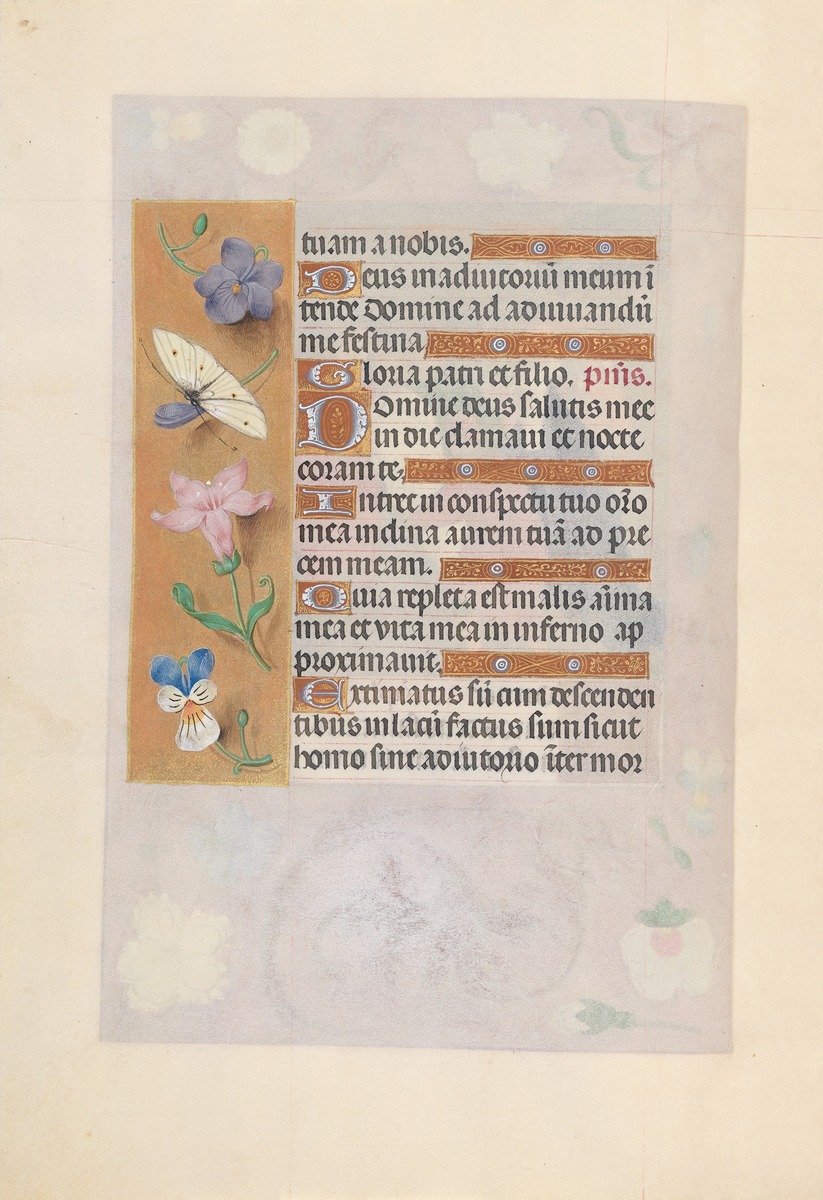 tuam a nobis.
Deus in adiutoriū meum ī
tende Domine ad adiuuandū
me festina
Gloria patri et filio. p̄m̄s.
Domine deus salutis mee
in die clamaui et nocte
coram te,
Intret in conspectu tuo or̄o
mea inclina aurem tuā ad pre
cem meam.
Quia repleta est malis aīma
mea et vita mea in inferno ap
proximauit.
Extimatus sū cum descenden
tibus in lacū factus sum sicut
homo sine adiutorio īter mor